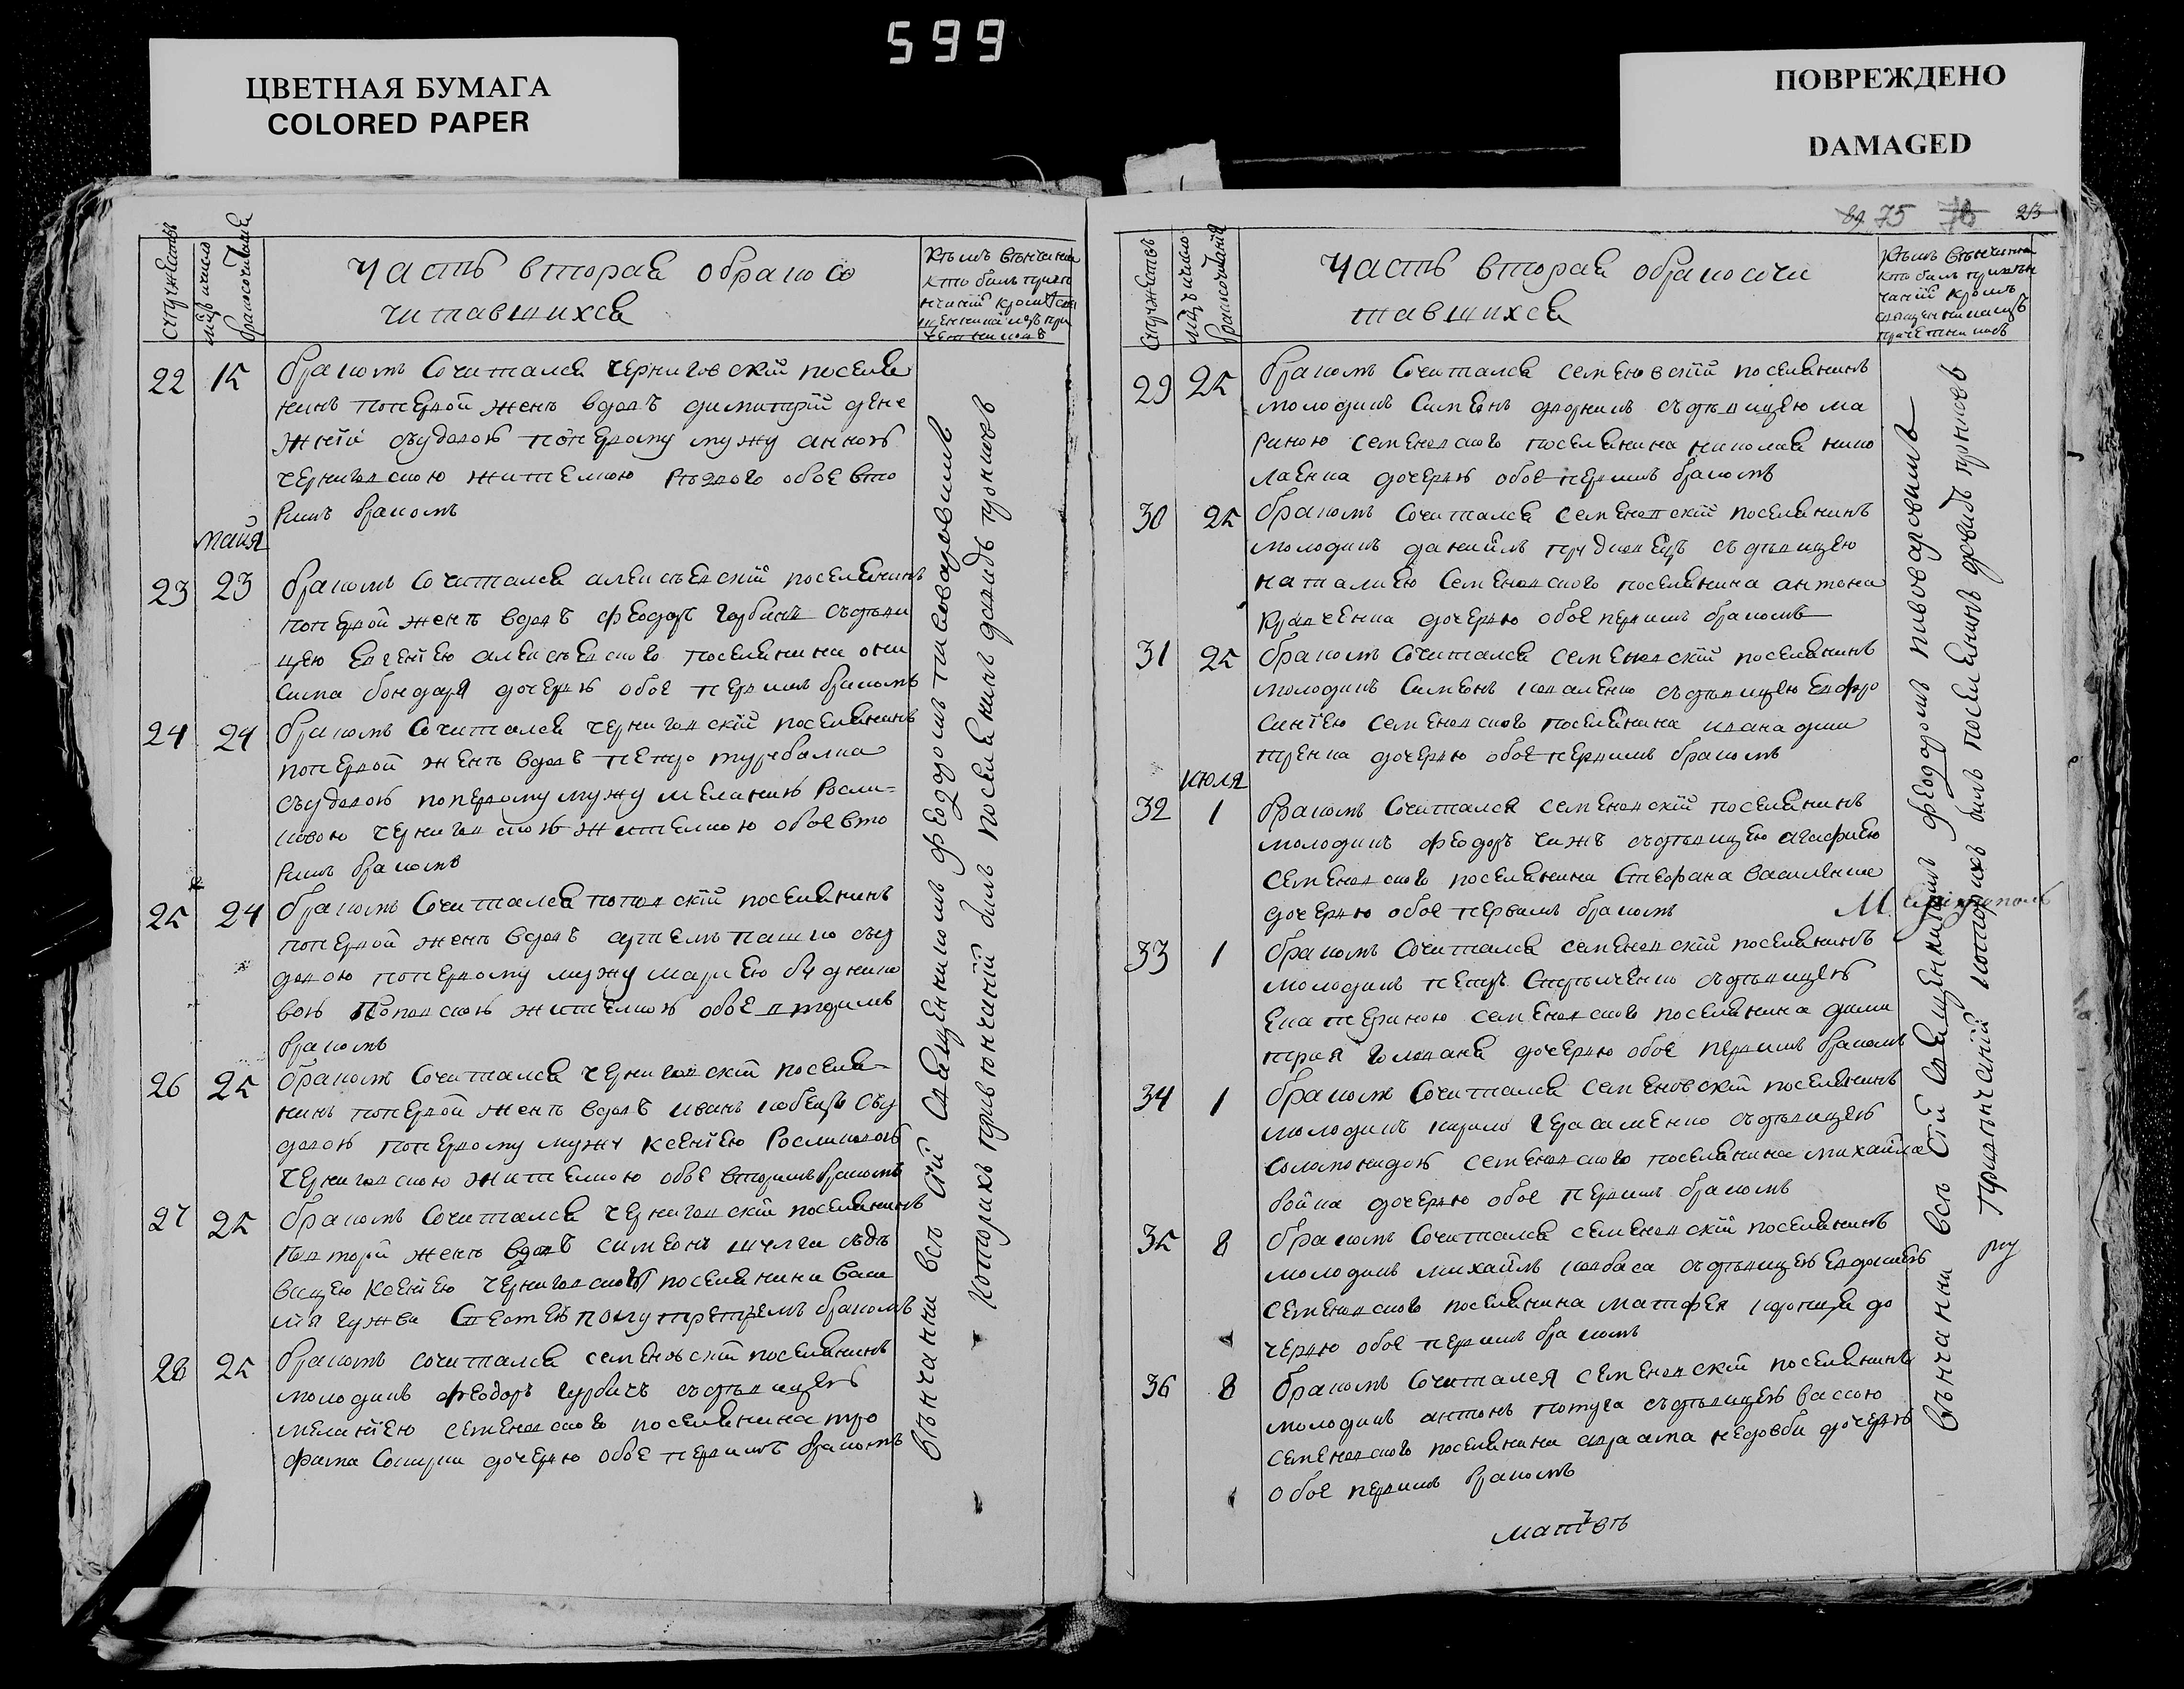 599
ЦВЕТНАЯ БУМАГА
COLORED PAPER
ПОВРЕЖДЕНО
DAMAGED
щетъ ужествъ
мцъ и число
бракосочитания
Часть вторая обракосо
читавшихся
Кѣмъ вѣнчанни
кто билъ привѣ
нчаній кромѣ свя
щенника изъ при
четниковъ
22 15 бракомъ Сочитался черниговскій поселя
нинъ поперĸой женѣ вдовъ димитрій дене
жній съудовою поперĸому мужу анною
черниговскою жителкою обое вто
римъ бракомъ
майя
23 23 бракомъ Сочитался алексѣевскій поселянинъ
поперĸой женѣ вдовъ феодоръ Горбикъ съдѣви
цею Евгенїею алексѣевского поселянина они
сима бондаря дочерю обое первимъ бракомъ
24 24 бракомъ Сочитался черниговскій поселянинъ
попервой женѣ вдовъ петро
съудовою попервому мужу меланиею
черниговскою жителкою обое вто
римъ бракомъ
25 24 бракомъ Сочитался поповскій поселянинъ
попервой женѣ вдовъ артемъ пашко съу
довою попервому мужу марїею будник
вою поповскою жителкою обое вторимъ
бракомъ
26 25 бракомъ Сочитался черниговскій поселя
нинъ попервой женѣ вдовъ иванъ кобецъ съу
довою попервому мужу ксенїею
черниговскою жителкою обое вторимъ бракомъ
27 25 бракомъ Сочитался черниговскій поселянинъ
повторой женѣ вдовъ симеонъ шулга съдѣ
вицею ксенїею черниговского поселянина васи
лія гужва бракомъ
28 25 бракомъ сочитался семеновскій поселянинъ
молодикъ феодоръ Гурбичъ съдѣвицею
меланїею семеновского поселянина тро
фима дочерю обое первимъ бракомъ
вѣнчанни всѣ сїи священникомъ феодоромъ пивоваровимъ
которихъ привѣнчаній билъ поселянинъ давидъ пронкѣвъ
89 75 76 213
Часть вторая обракосочи
тавшихся
Кѣмъ вѣнчанни
кто билъ привѣн
чаній кромѣ
священника изъ
причетниковъ
29 25 бракомъ Сочитался семеновскій поселянинъ
молодикъ Симеонъ съдѣвицею ма
риною семеновского поселянина николая нико
лаенка дочерю обое первимъ бракомъ
30 25 бракомъ Сочитался семеновскій поселянинъ
молодикъ данїилъ съдѣвицею
наталиею Семеновского поселянина антона
кравченка дочерю обое первимъ бракомъ
31 25 бракомъ Сочитался семеновскій поселянинъ
молодикъ Симеонъ коваленко съдѣвицею Евфро
синїею семеновского поселянина ивана дми
тренка дочерю обое первимъ бракомъ
июля
32 1 бракомъ Сочитался семеновскій поселянинъ
молодикъ феодоръ чижъ съдѣвицею агафиею
семеновского поселянина Стефана василенка
дочерю обое первимъ бракомъ
33 1 бракомъ Сочитался семеновскій поселянинъ
молодикъ петръ съдѣвицею
Екатериною семеновского поселянина дими
трия Голована дочерю обое первимъ бракомъ
34 1 бракомъ Сочитался семеновскій поселянинъ
молодикъ кирило Герасименко съдѣвицею
соломонидою семеновского поселянина михайла
бойка дочерю обое первимъ бракомъ
35 8 бракомъ Сочитался семеновскій поселянинъ
молодикъ михайлъ ковбаса съдѣвицею Евдокиею
семеновского поселянина матфея до
черю обое первимъ бракомъ
36 8 бракомъ Сочитался семеновскій поселянинъ
молодикъ антонъ потуга съдѣвицею вассою
семеновского поселянина аврама недовби дочерю
обое первимъ бракомъ
вѣнчанни всѣ сїи священникомъ феодоромъ пивоваровимъ
привѣнчаній которихъ билъ поселянинъ давидъ пронкѣвъ